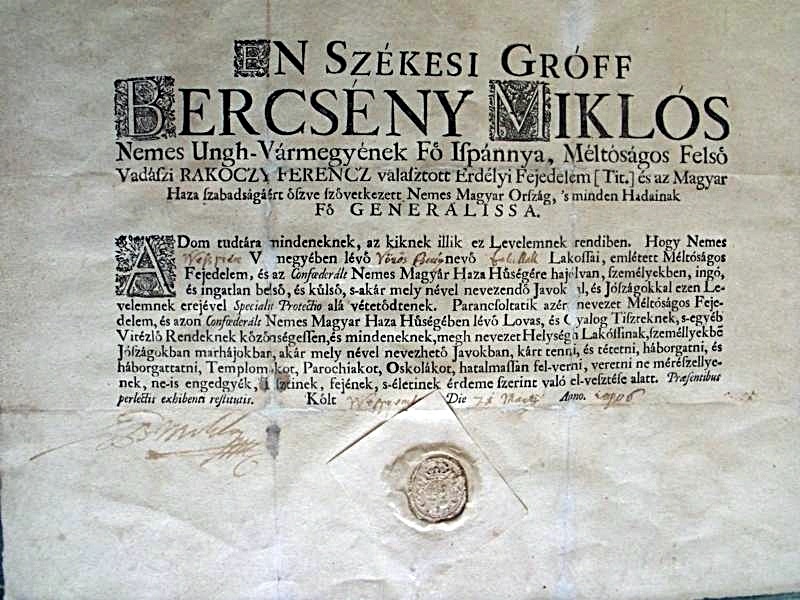 EN SZÉKESI GRÓFF
BERCSÉNY MIKLÓS
Nemes Ungh-Vármegyének Fő Ispánnya, Méltóságos Felső
Vadászi RAKOCZY FERENCZ választott Erdélyi Fejedelem [Tit.] és az Magyar
Haza szabadságáért öszve szövetkezett Nemes Magyar Ország, 's minden Hadainak
Fő GENERALISSA.
ADom tudtára mindeneknek, az kiknek illik ez Levelemnek rendiben. Hogy Nemes
V megyében lévő Vörös nevő Lakossai, emlétett Méltóságos
Fejedelem, és az Confœderált Nemes Magyár Haza Hűségére hajolván, személyekben, ingó,
és ingatlan belső, és külső, s-akár mely nével nevezendő Javok l, és Jószágokkal ezen Le-
velemnek erejével Specialis Protectio alá vétetődtenek. Parancsoltatik azér nevezet Méltóságos Feje-
delem, és azon Confœderált Nemes Magyar Haza Hűségében lévő Lovas, és Gyalog Tiszteknek, s-egyéb
Vitézlő Rendeknek közönségessen, és mindeneknek, megh nevezet Helységh Lakóssinak, személlyekbē
Jószágokban marhájokbar, akár mely nével nevezhető Javokban, kárt tenni, és tétetni, háborgatni, és
háborgattatni, Templomokot, Parochiakot, Oskolákot, hatalmassan fel-verni, veretni ne mérészellye-
nek, ne-is engedgyék, színek, fejének, s-életinek érdeme szerint való el-vesztése alatt. Præsentibus
perlectis exhibenti restitutis. Költ Die Anno.